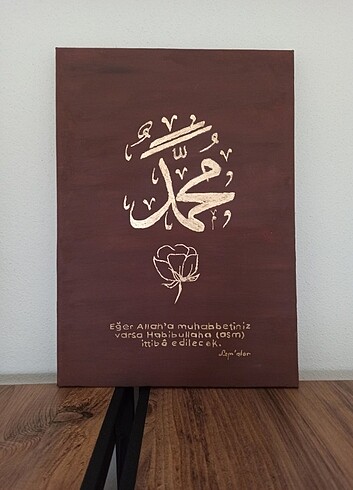 محمد
Eğer Allah'a muhabbetiniz
varsa Habibullaha (asm)
ittibâ edilecek.